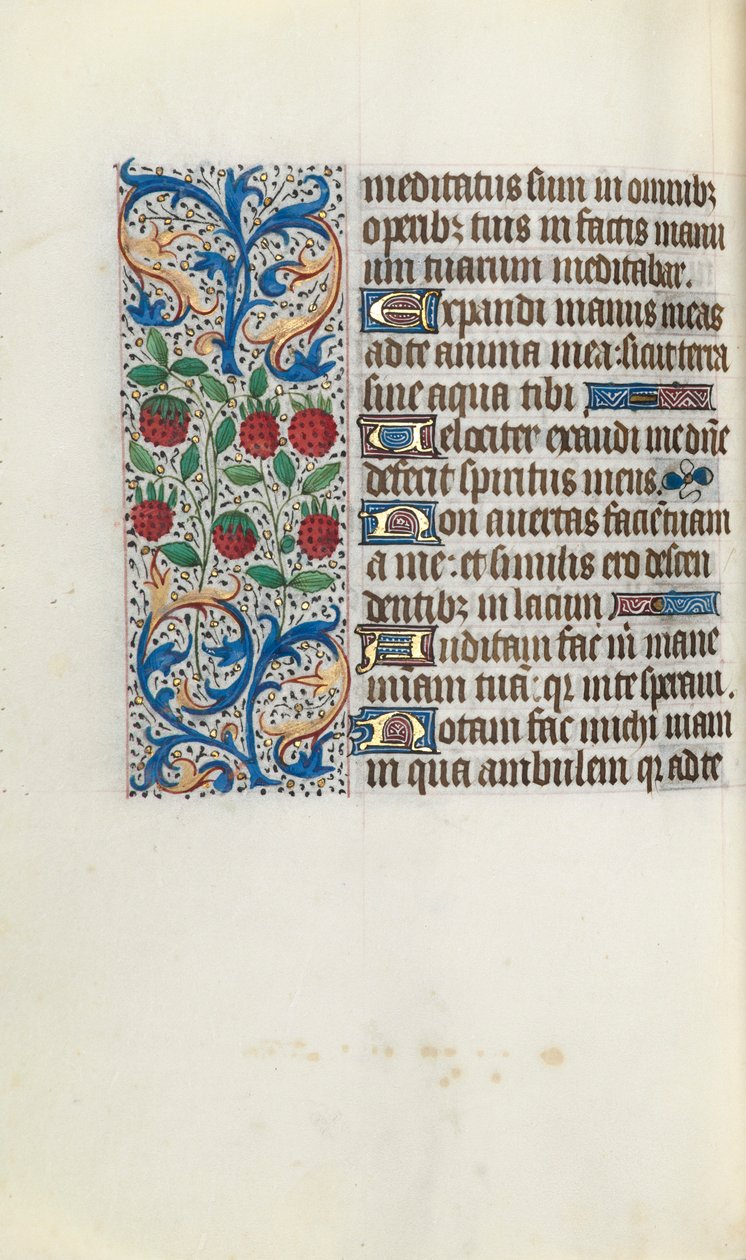 meditatus sum in omnibꝫ
operibꝫ tuis in factis manu
um tuarum meditabar.
Expandi manus meas
ad te anima mea: sicut terra
sine aqua tibi
Uelociter exaudi me dn̄e
defecit spiritus meus.
Non auertas faciē tuam
a me: et similis ero descen
dentibꝫ in lacum
Auditam fac m̄ mane
mīam tuā: qꝛ in te speraui.
Notam fac michi uiam
in qua ambulem qꝛ ad te